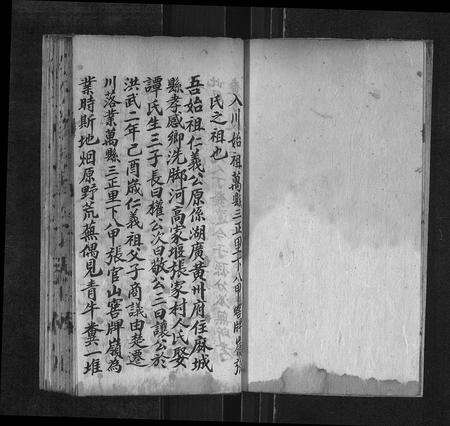 入川始祖萬縣三正里下八甲
氏之祖也
吾始祖仁義公原係湖廣黄州府住麻城
縣孝感鄉洗脚河高家堰張家村人氏娶
譚氏生三子長曰權公次曰敬公三曰讓公於
洪武二年己酉嵗仁義祖父子商議由楚遷
川落業萬縣三正里下八甲張官山窖脾嶺為
業時斯地烟原野荒蕪偶見青牛糞一堆